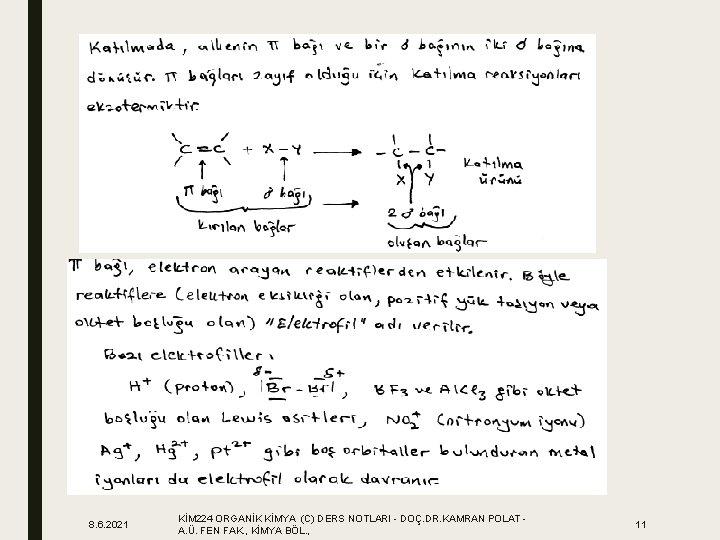 Katılmada, alkenin π bağı ve bir σ bağının iki σ bağına
dönüşür. π bağları zayıf olduğu için katılma reaksiyonları
ekzotermiktir.
C=C + X–Y → –C–C– Katılma
X Y ürünü
π bağı σ bağı 2 σ bağı
kırılan bağlar oluşan bağlar
π bağı, elektron arayan reaktiflerden etkilenir. Böyle
reaktiflere (elektron eksikliği olan, pozitif yük taşıyan veya
oktet boşluğu olan) "Elektrofil" adı verilir.
Bazı elektrofiller:
H⁺ (proton), |Br–Br|, BF₃ ve AlCl₃ gibi oktet
δ- δ+
boşluğu olan Lewis asitleri, NO₂⁺ (nitronyum iyonu)
Ag⁺, Hg²⁺, Pt²⁺ gibi boş orbitaller bulunduran metal
iyonları da elektrofil olarak davranır.
8.6.2021
KİM224 ORGANİK KİMYA (C) DERS NOTLARI - DOÇ.DR.KAMRAN POLAT -
A.Ü. FEN FAK., KİMYA BÖL.,
11